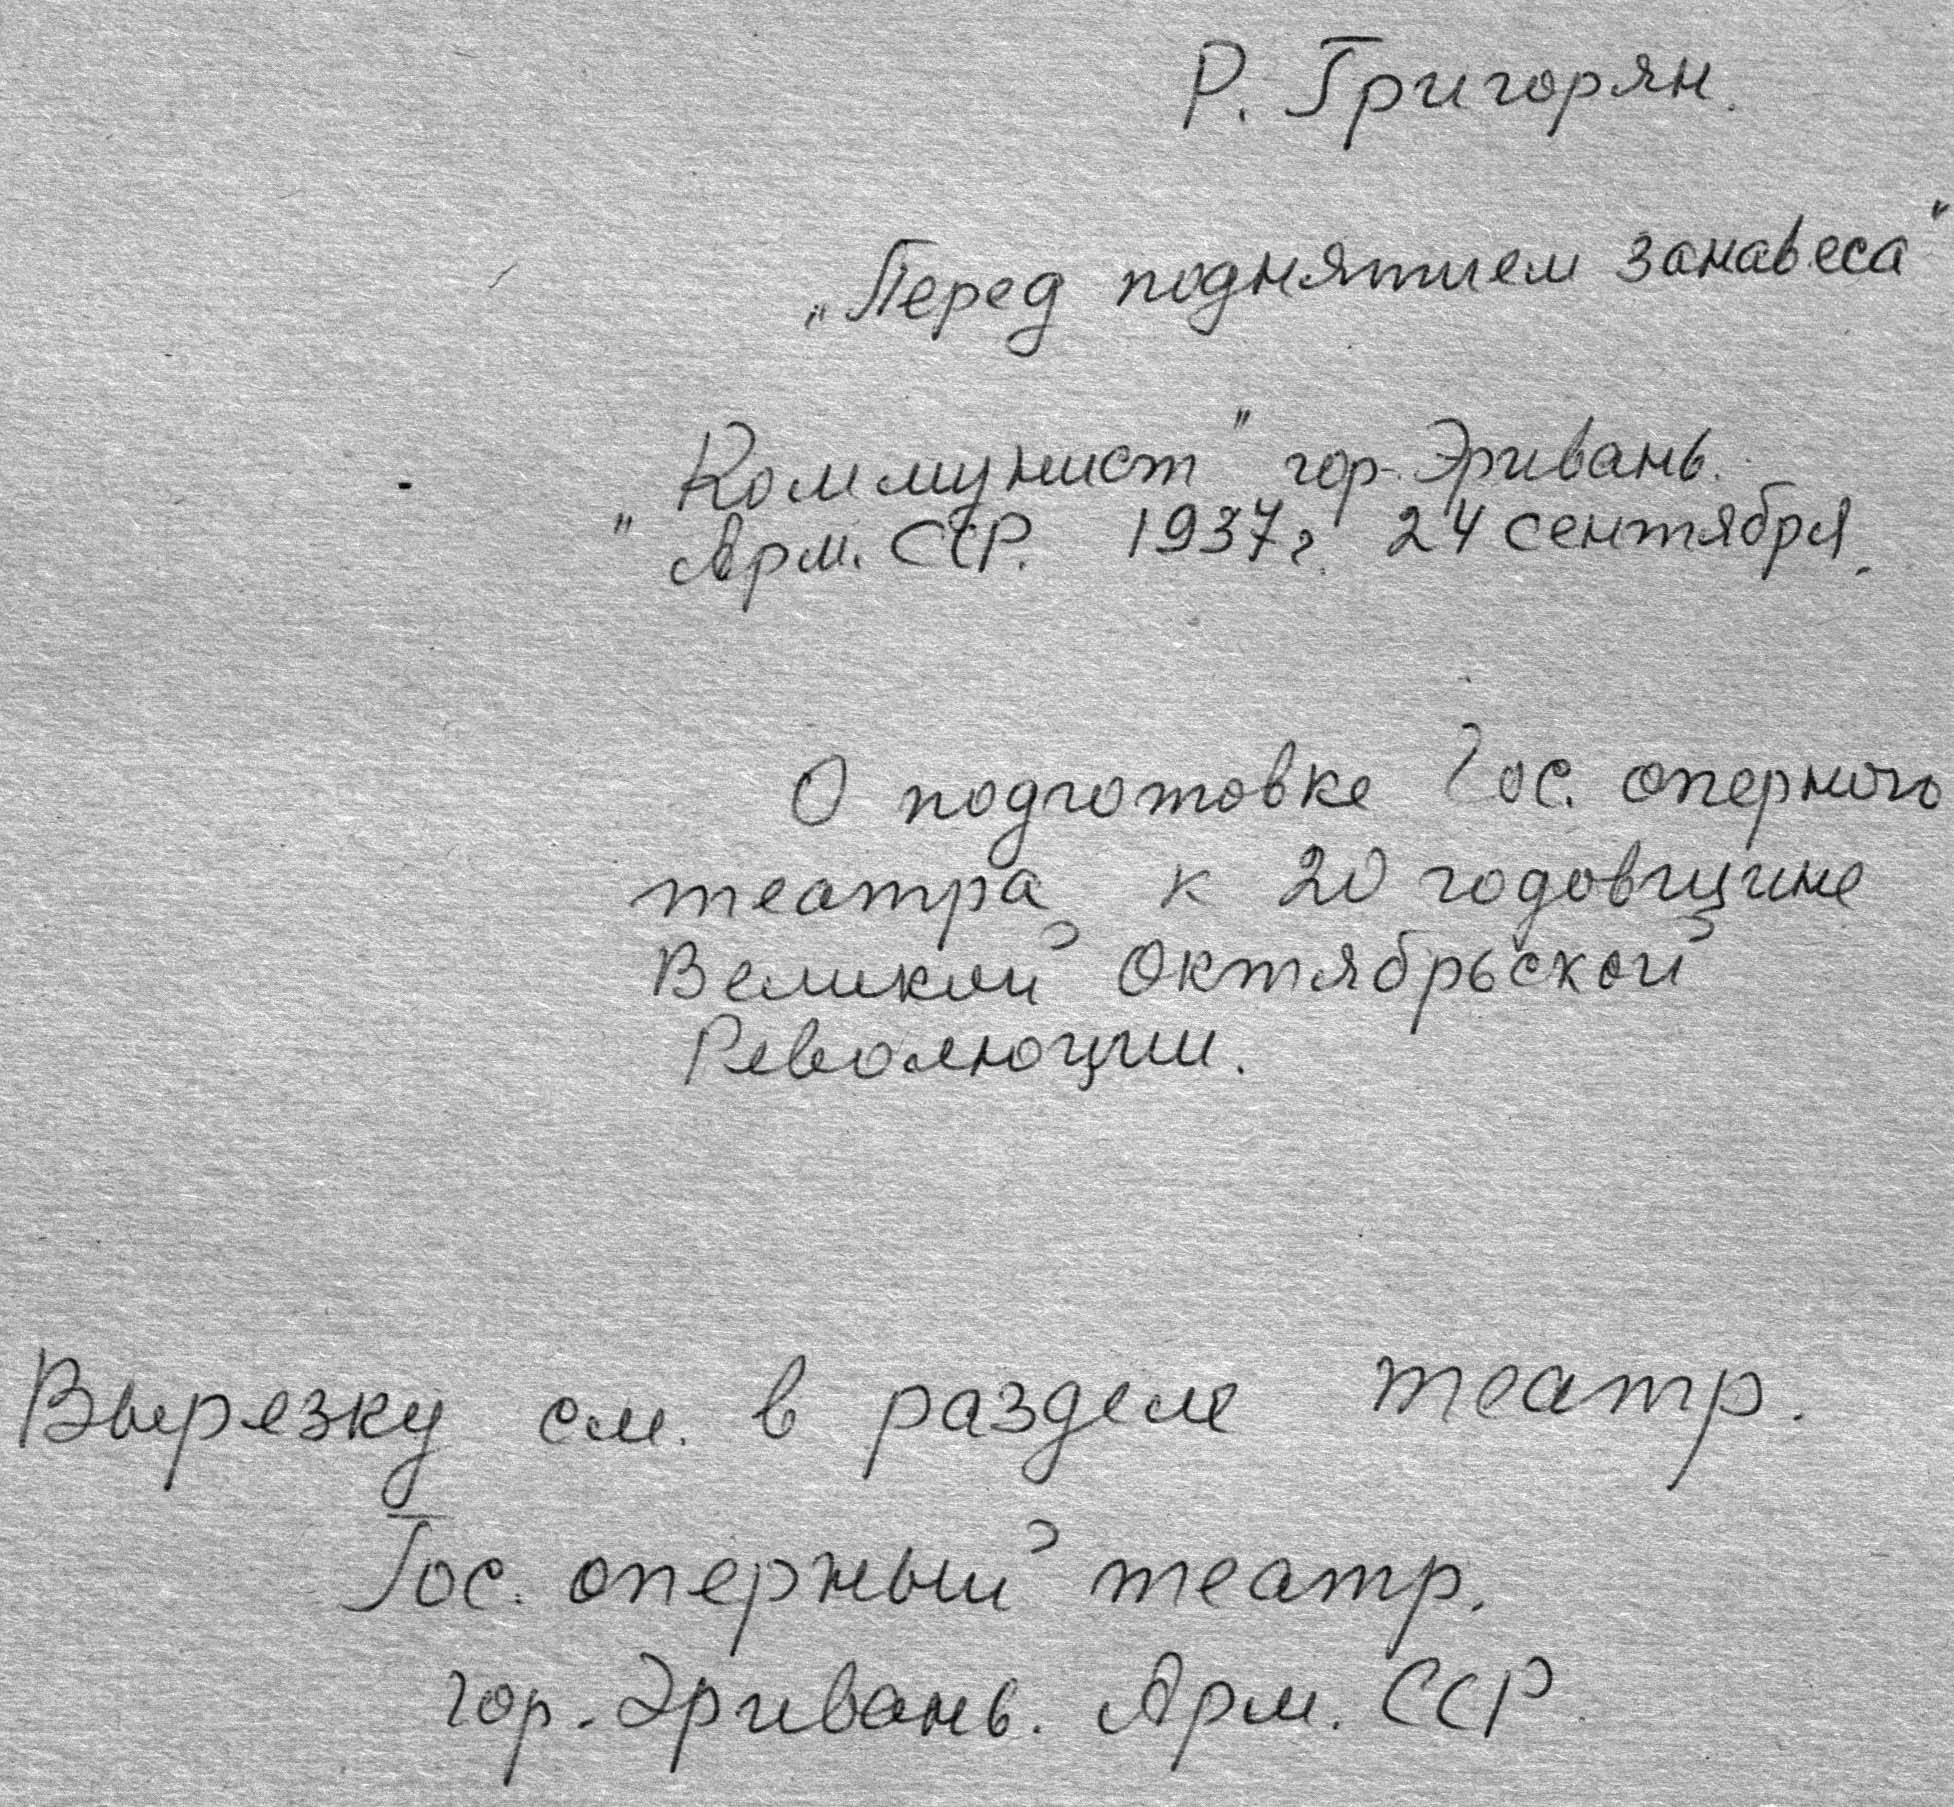 Р. Григорян.
„Перед поднятием занавеса"
„Коммунист" гор. Эривань.
Арм. ССР. 1937 г. 24 сентября.
О подготовке Гос. оперного
театра к 20 годовщине
Великой Октябрьской
Революции.
Вырезку см. в разделе театр.
Гос. оперный театр.
гор. Эривань. Арм. ССР.